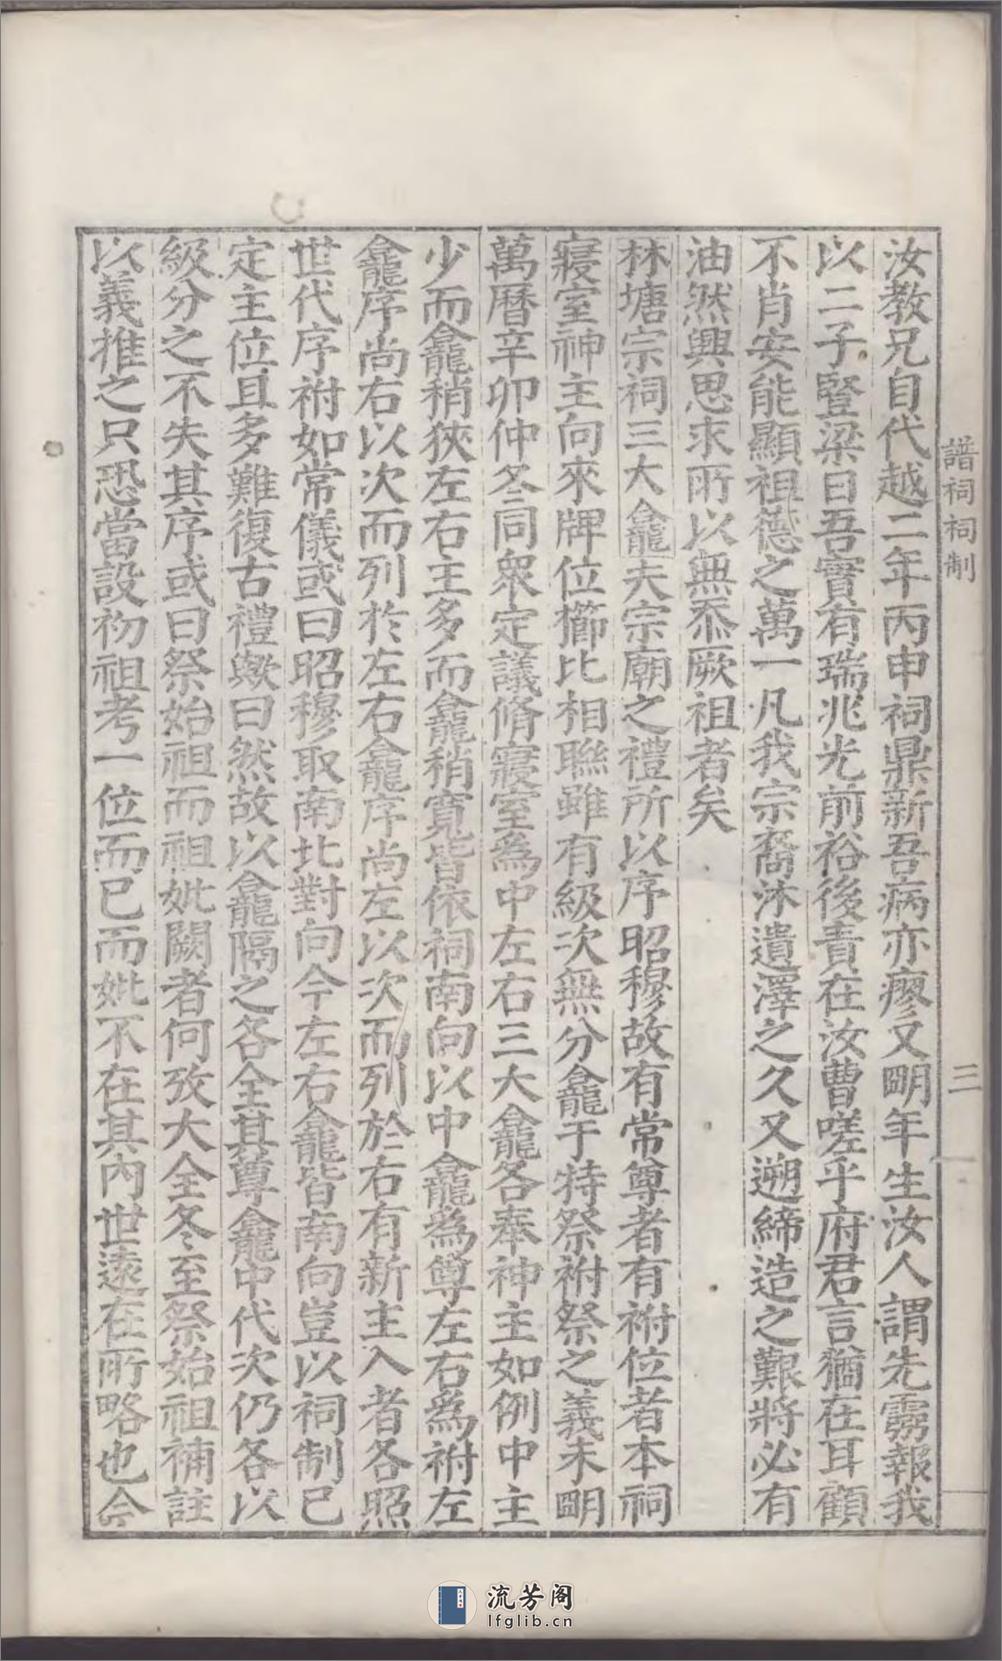 譜祠祠制
三
汝教兄自代越二年丙申祠鼎新吾病亦瘳又明年生汝人謂先靈報我
以二子豎梁曰吾實有瑞兆光前裕後責在汝曹嗟乎府君言猶在耳顧
不肖安能顯祖德之萬一凡我宗裔沐遺澤之久又遡締造之艱將必有
油然興思求所以無忝厥祖者矣
林塘宗祠三大龕夫宗廟之禮所以序昭穆故有常尊者有祔位者本祠
寢室神主向來牌位櫛比相聯雖有級次無分龕于特祭祔祭之義未明
萬曆辛卯仲冬同眾定議脩寢室為中左右三大龕各奉神主如例中主
少而龕稍狹左右主多而龕稍寬皆依祠南向以中龕為尊左右為祔左
龕序尚右以次而列於左右龕序尚左以次而列於右有新主入者各照
世代序祔如常儀或曰昭穆取南北對向今左右龕皆南向豈以祠制已
定主位且多難復古禮歟曰然故以龕隔之各全其尊龕中代次仍各以
級分之不失其序或曰祭始祖而祖妣闕者何攷大全冬至祭始祖補註
以義推之只恐當設初祖考一位而已而妣不在其內世遠在所略也今
流芳阁
lfglib.cn